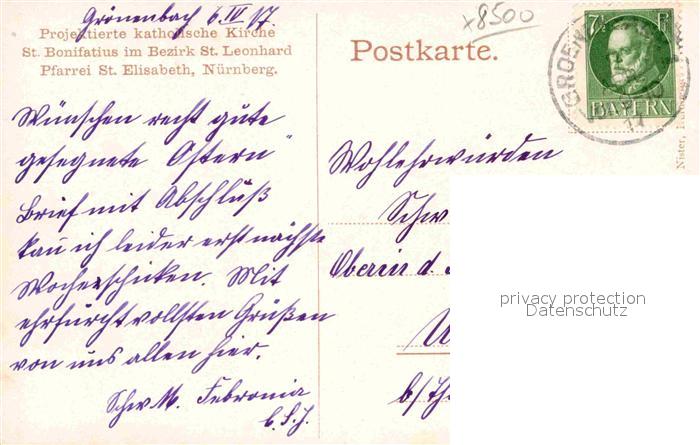 Grönenbach 6. IV 17.
x8500
Projektierte katholische Kirche
St. Bonifatius im Bezirk St. Leonhard
Pfarrei St. Elisabeth, Nürnberg.
Postkarte.
7½ Pf
BAYERN
GROEN
Nister, Nürnberg
Wünschen recht gute
gesegnete Ostern
Brief mit Abschluß
kan ich leider erst nächste
Woche schicken. Mit
ehrfurchtvollsten Grüßen
von uns allen hier.
Schw. M. Febronia
Wohlehrwürden
Schw
Oberin d.
U
b/Th
privacy protection
Datenschutz